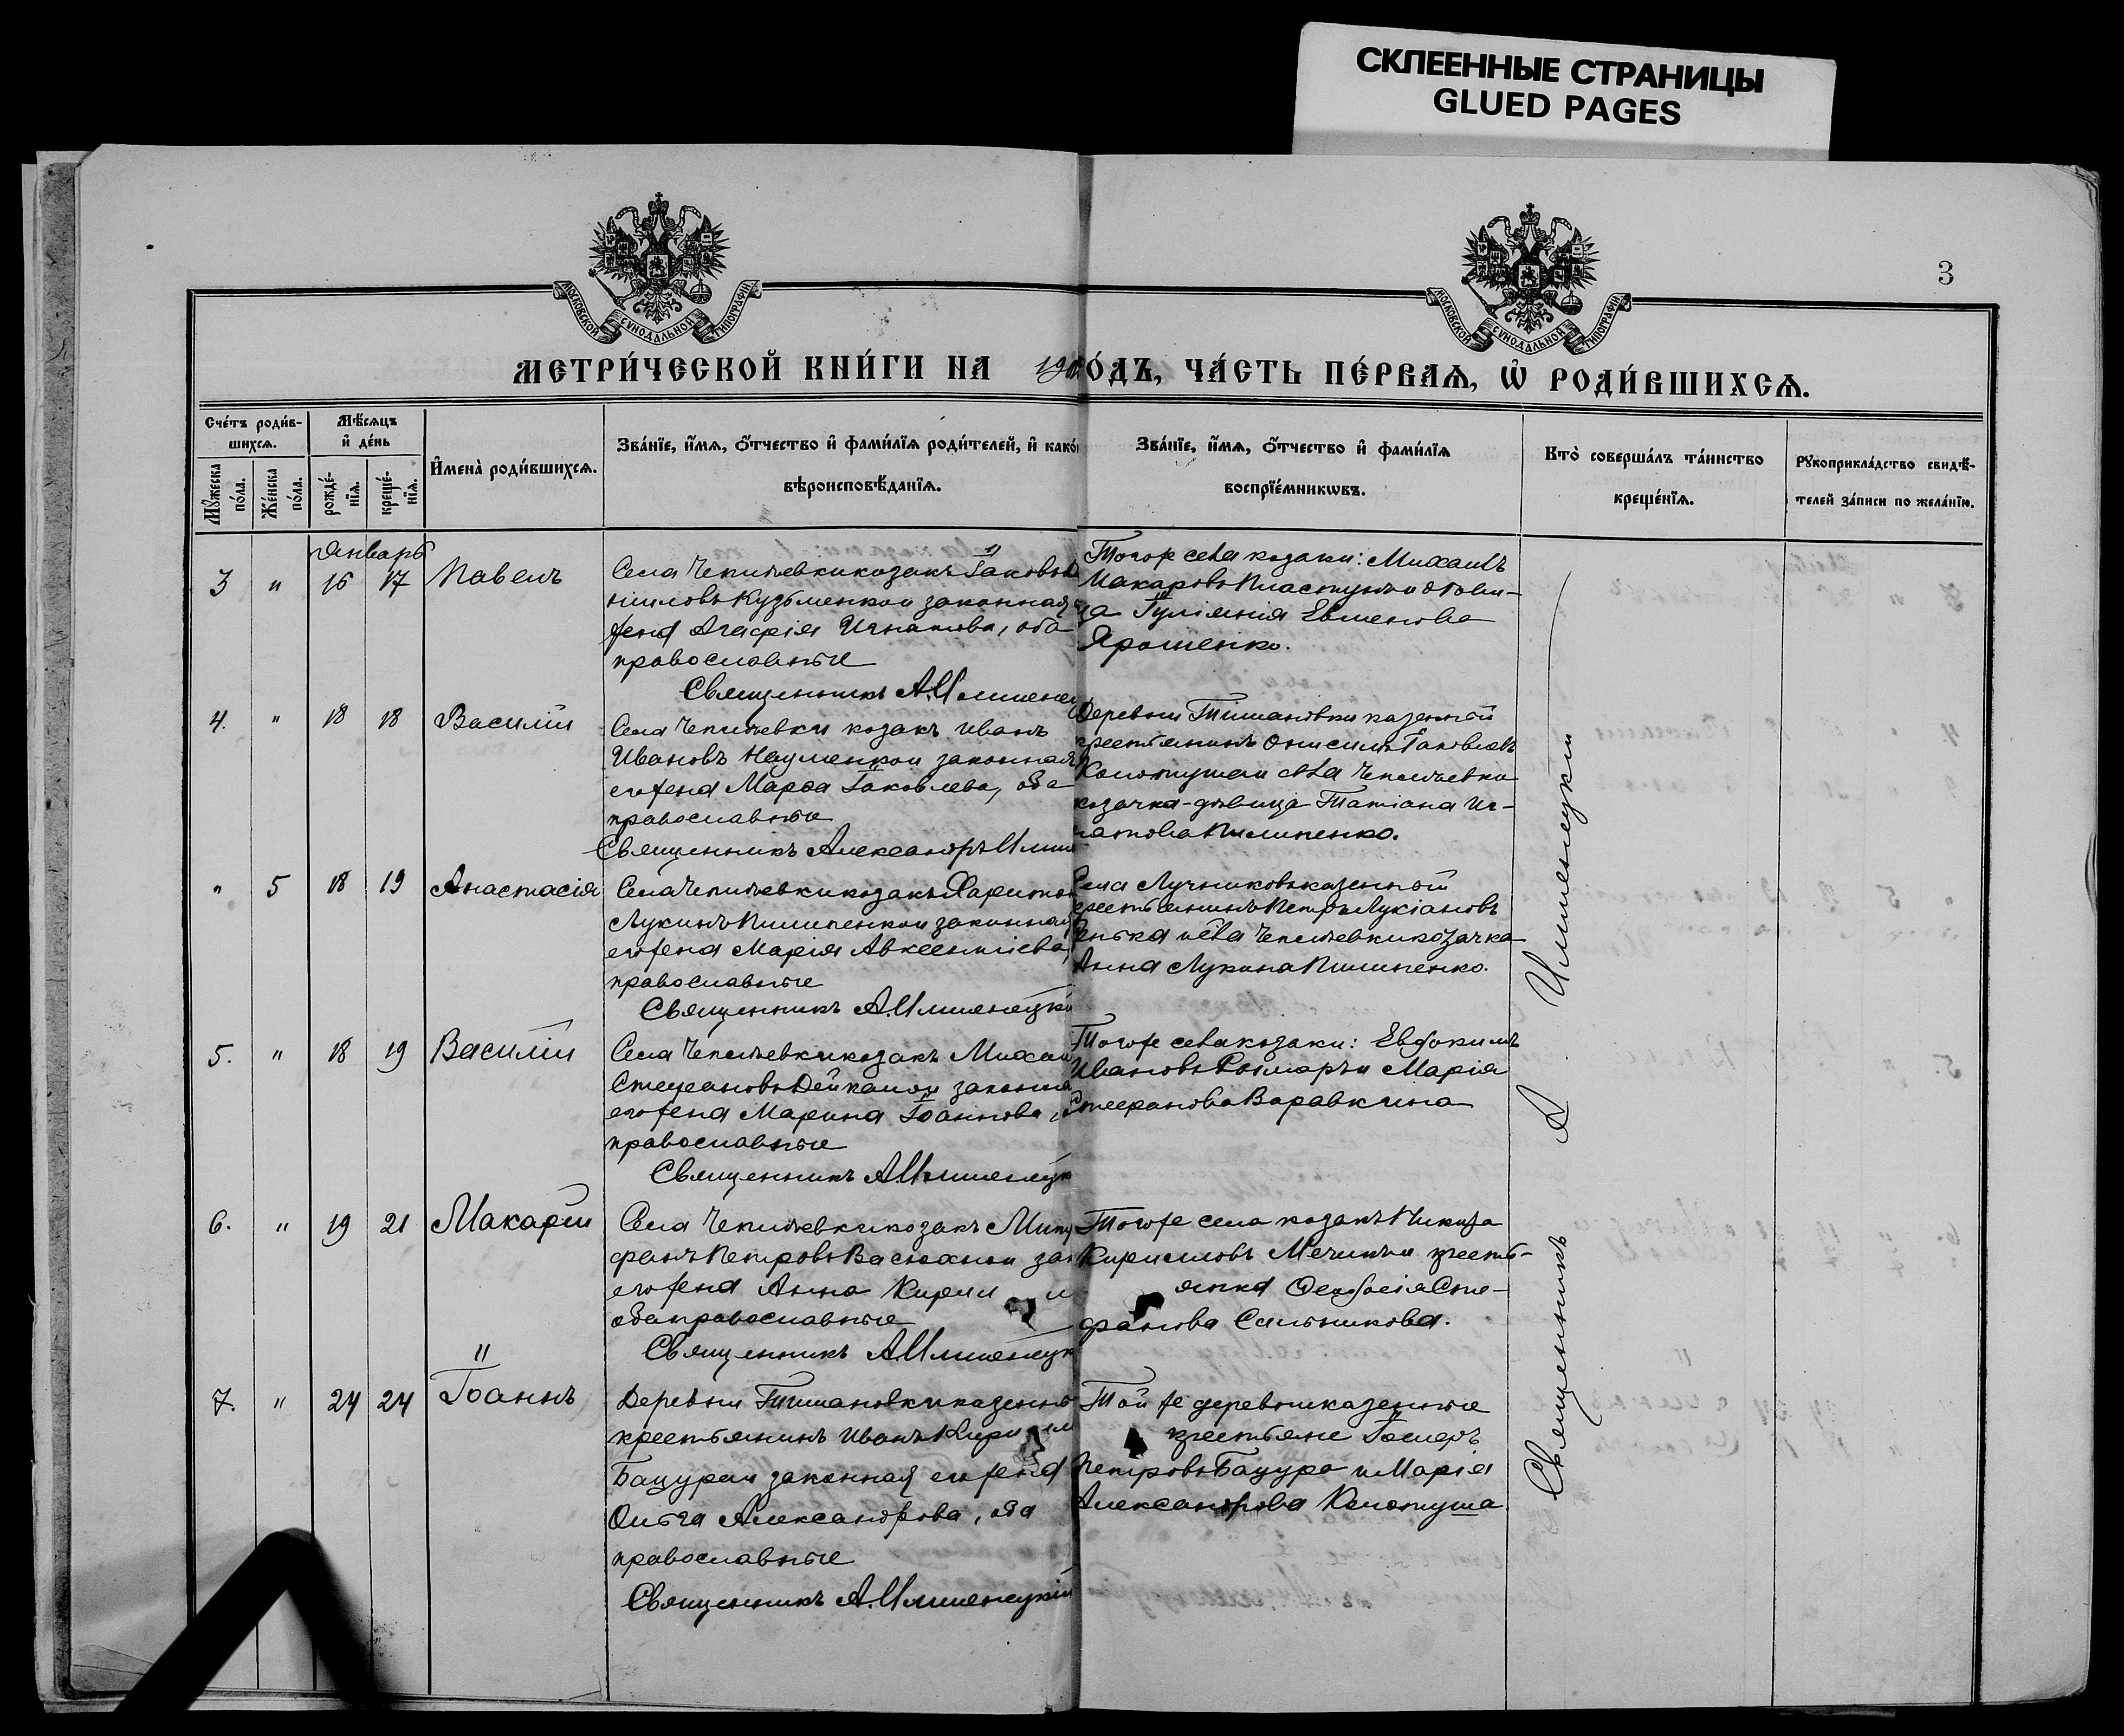 СКЛЕЕННЫЕ СТРАНИЦЫ
GLUED PAGES
3
МОСКОВСКОЙ СѴНОДАЛЬНОЙ ТИПОГРАФІИ
МОСКОВСКОЙ СѴНОДАЛЬНОЙ ТИПОГРАФІИ
МЕТРИ́ЧЕСКОЙ КНИ́ГИ НА 190 О́ДЪ, ЧА́СТЬ ПЕ́РВАѦ, Ѡ҆ РОДИ́ВШИХСѦ.
Сче́тъ роди́в-
шихсѧ.
Мꙋ́жеска по́ла.
Же́нска по́ла.
Мѣ́сѧцъ
и҆ де́нь
рожде́-
нїѧ.
креще́-
нїѧ.
И҆мена̀ роди́вшихсѧ.
Зва́нїе, и҆́мѧ, ѻ҆́тчество и҆ фами́лїѧ роди́телей, и҆ како́
вѣроисповѣ́данїѧ.
Зва́нїе, и҆́мѧ, ѻ҆́тчество и҆ фами́лїѧ
воспрїе́мникѡвъ.
Кто̀ соверша́лъ та́инство
креще́нїѧ.
Рꙋкоприкла́дство свидѣ́-
телей за́писи по жела́нїю.
Январь
3 " 16 17 Павелъ
Села Чепилевки козакъ Іаковъ
ниловъ Кузьменко и законная
жена Агафія Игнатова, оба
православные
Священникъ А. Ильшенец
Того же села козаки: Михаилъ
Макаровъ Пластунъ и дѣви-
ца Іуліанія Евменова
Ярошенко.
4. " 18 18 Василій
Села Чепилевки козакъ Иванъ
Ивановъ Науменко и законная
его жена Марѳа Іаковлева, оба
православные
Священникъ Александръ
Деревни Тишановки казенный
крестьянинъ Онисимъ Іаковлевъ
Колотуша и села Чепилевки
козачка-дѣвица Татіана Иг-
натова Пилипенко.
" 5 18 19 Анастасія
Села Чепилевки козакъ Харитон
Лукинъ Пилипенко и законная
его жена Марія Авксентіева,
православные
Священникъ А. Ильшенецкі
Села Лучниковъ казенный
крестьянинъ Петръ Лукіановъ
и села Чепилевки козачка
Анна Лукина Пилипенко.
5. " 18 19 Василій
Села Чепилевки козакъ Михаи
Стефановъ Дейкало и законна
его жена Марина Іоаннова,
православные
Священникъ А. Ильшенецк
Того же села козаки: Евдокимъ
Ивановъ Рымаръ и Марія
Стефанова Варавкина
6. " 19 21 Макарій
Села Чепилевки козакъ Мит
фанъ Петровъ Васюхно и зак
его жена Анна Кирил
оба православные
Священникъ А. Ильшенецк
Того же села козакъ Никита
Кирилловъ Мечикъ и кресть-
янка Ѳеодосія Сте-
фанова Сальникова.
7. " 24 24 Іоаннъ
Деревни Тишановки казенны
крестьянинъ Иванъ Кирил
Бацура и законная его жена
Ольга Александрова, оба
православные
Священникъ А. Ильшенецкій
Той же деревни казенные
крестьяне Іосифъ
Петровъ Бацура и Марія
Александрова Колотуша
Священникъ А. Ильшенецкій